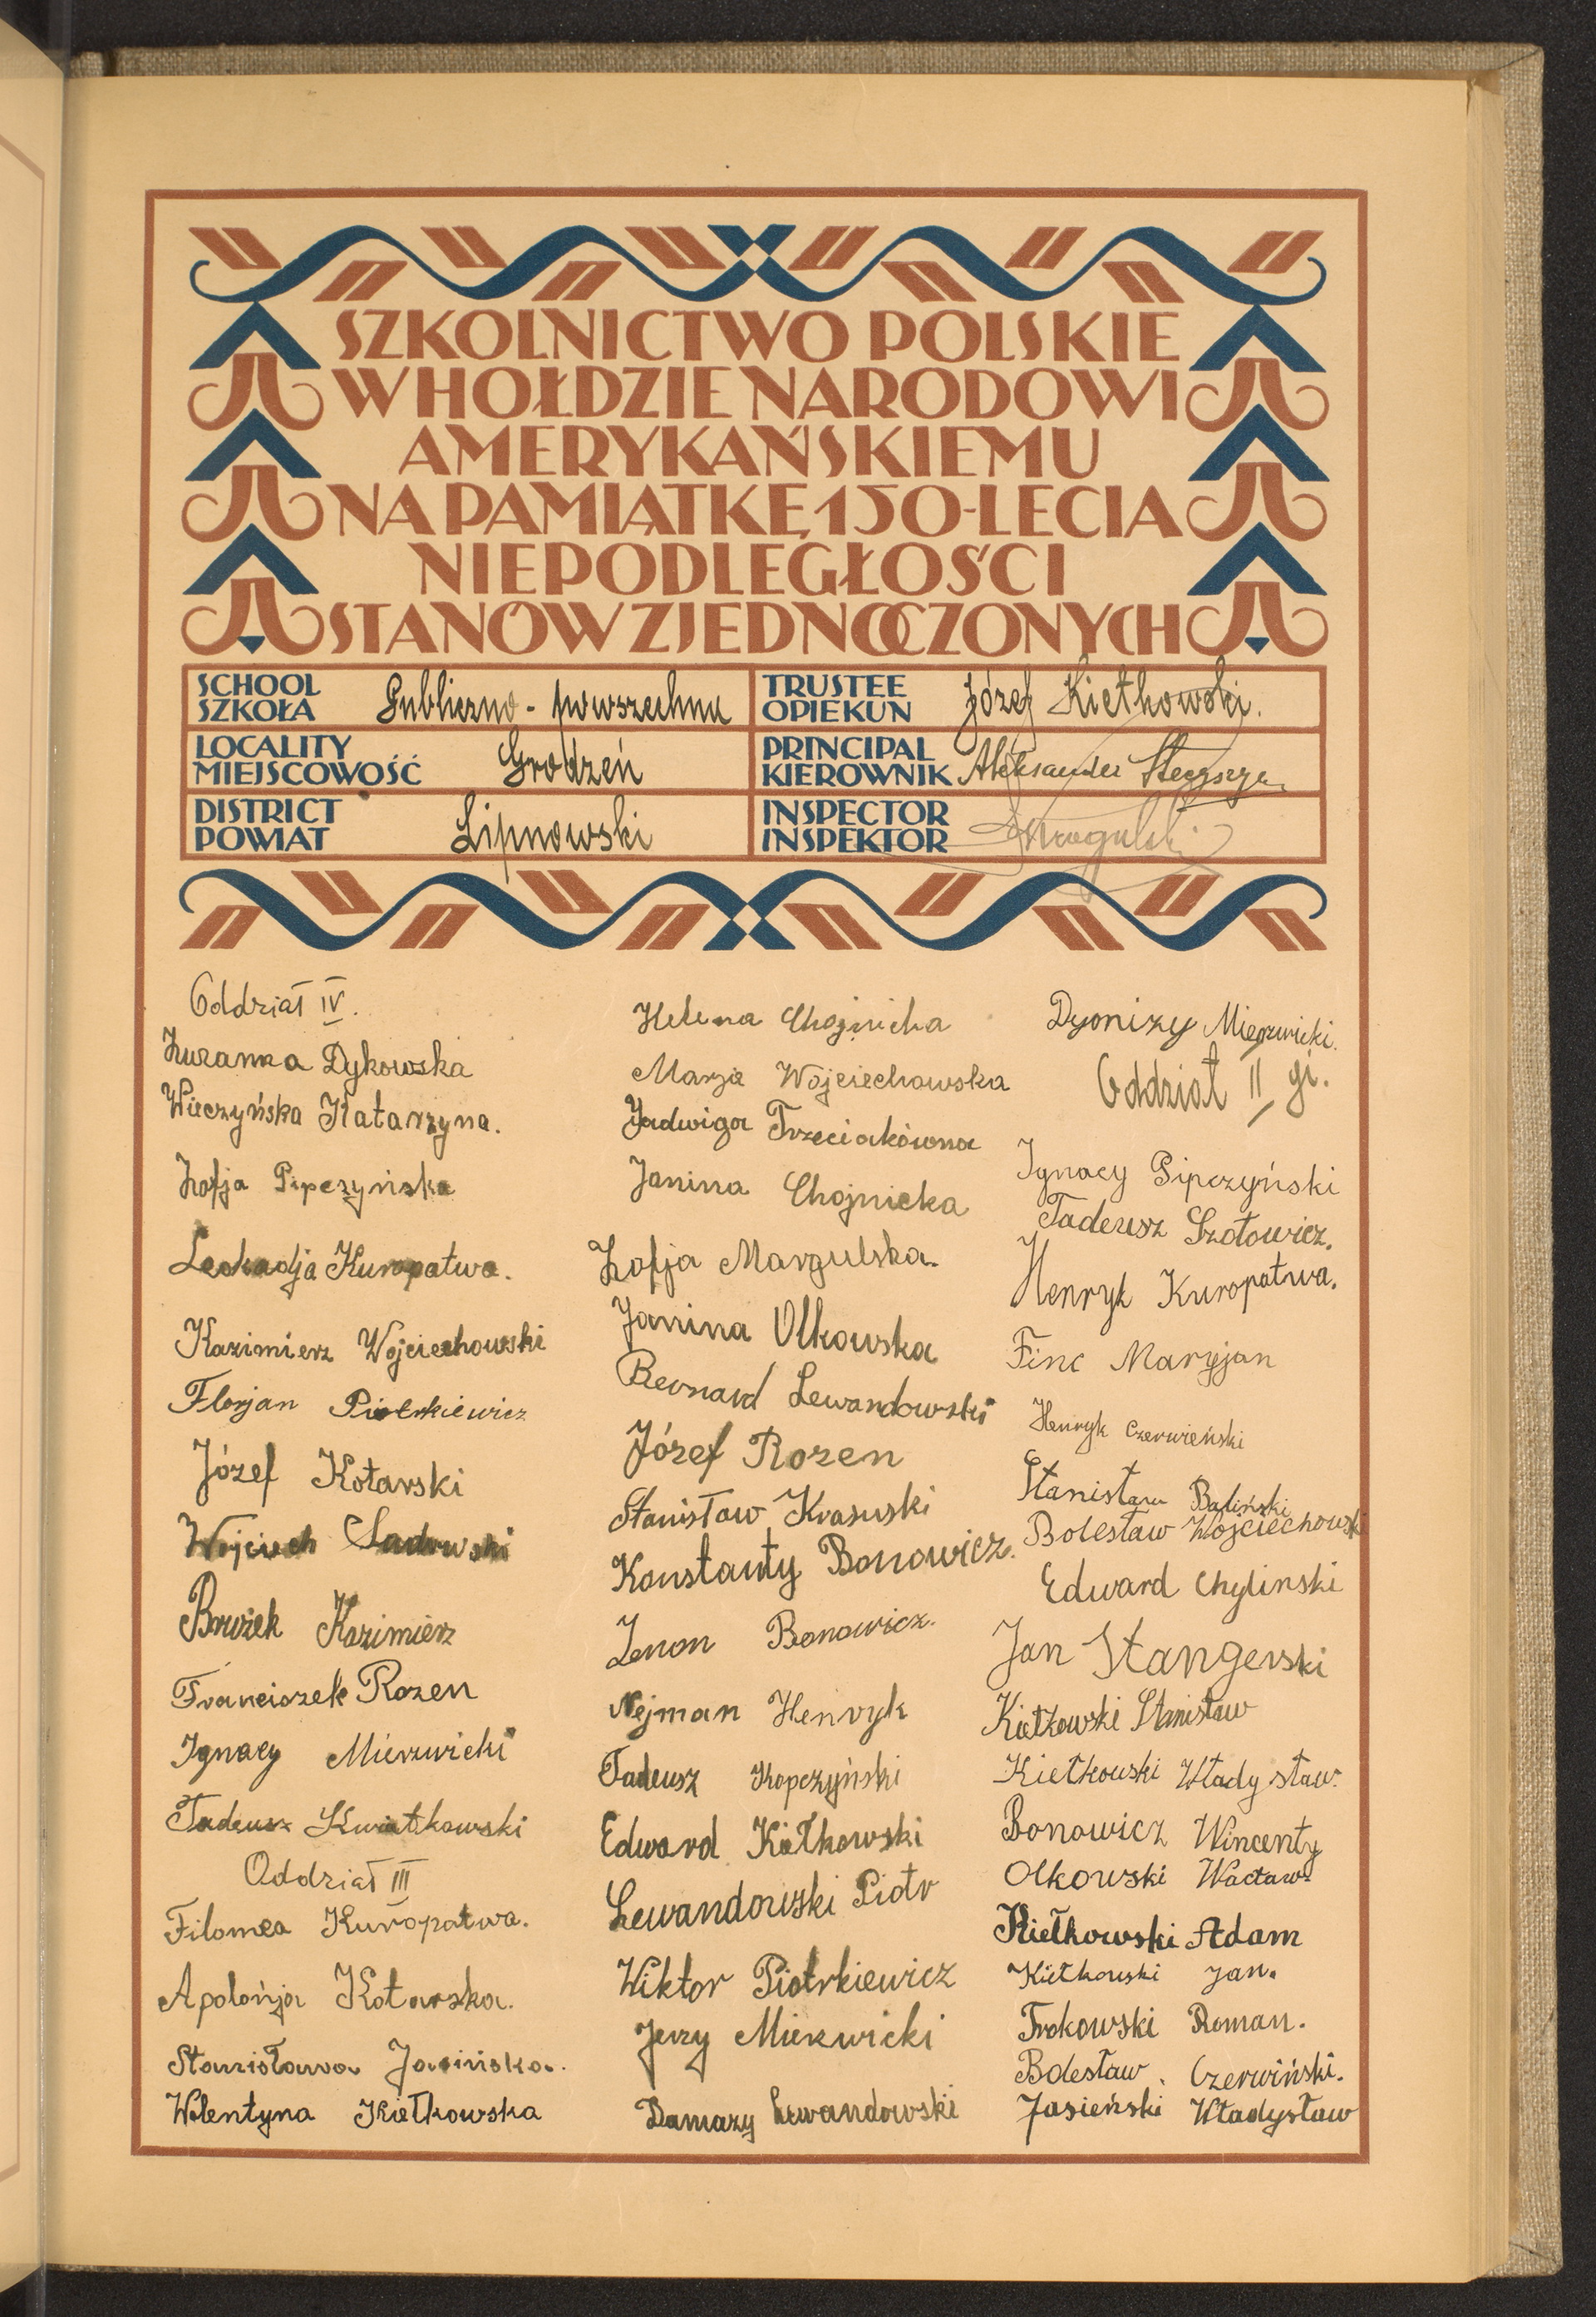 SZKOLNICTWO POLSKIE
W HOŁDZIE NARODOWI
AMERYKAŃSKIEMU
NA PAMIĄTKĘ 150-LECIA
NIEPODLEGŁOŚCI
STANÓW ZJEDNOCZONYCH
SCHOOL
SZKOŁA
Publiczno - powszechna
TRUSTEE
OPIEKUN
Józef Kiełkowski.
LOCALITY
MIEJSCOWOŚĆ
Grodzeń
PRINCIPAL
KIEROWNIK
Aleksander
DISTRICT
POWIAT
Lipnowski
INSPECTOR
INSPEKTOR
Oddział IV.
Zuzanna Dykowska
Wieczyńska Katarzyna.
Zofja Pipczyńska
Leokadja Kuropatwa.
Kazimierz Wojciechowski
Florjan Piotrkiewicz
Józef Kotarski
Wojciech Sadowski
Brużek Kazimierz
Franciszek Rozen
Ignacy Mierzwicki
Tadeusz Kwiatkowski
Oddział III
Filomea Kuropatwa.
Apolońja Kotarska.
Stanisława Jasińska.
Walentyna Kiełkowska
Helena Chojnicka
Marja Wojciechowska
Jadwiga Trzeciakówna
Janina Chojnicka
Zofja Margulska.
Janina Olkowska
Bernard Lewandowski
Józef Rozen
Stanisław Krasuski
Konstanty Bonowicz.
Zenon Bonowicz.
Nejman Henryk
Tadeusz Kopczyński
Edward Kiełkowski
Lewandowski Piotr
Wiktor Piotrkiewicz
Jerzy Mierzwicki
Damazy Lewandowski
Dyonizy Mierzwicki.
Oddział II gi.
Ignacy Pipczyński
Tadeusz Szotowicz.
Henryk Kuropatwa.
Finc Maryjan
Henryk Czerwieński
Stanisław Baliński
Bolesław Wojciechowski
Edward Chylinski
Jan Stangerski
Kiełkowski Stanisław
Kiełkowski Władysław.
Bonowicz Wincenty
Olkowski Wacław
Kiełkowski Adam
Kiełkowski Jan.
Trokowski Roman.
Bolesław. Czerwiński.
Jasieński Władysław